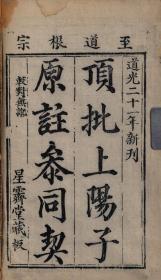 至道根宗
道光二十一年新刊
頂批上陽子
原註叅同契
較對無訛
星霽堂藏板